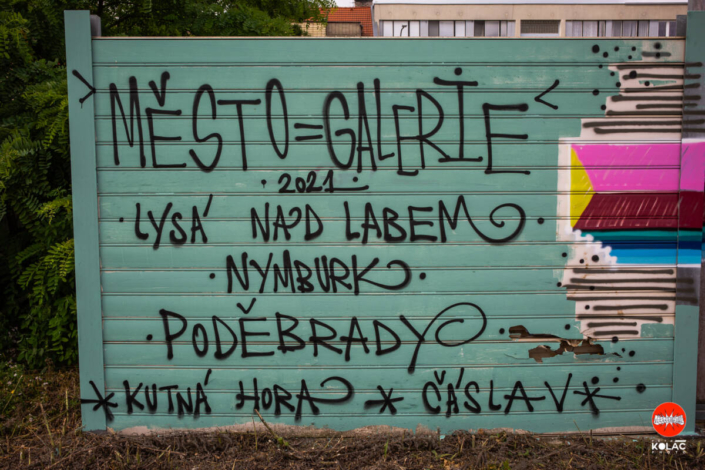 > MĚSTO=GALERIE <
· 2021
· LYSÁ NAD LABEM ·
· NYMBURK ·
· PODĚBRADY
* KUTNÁ HORA * ČÁSLAV *
KOLÁČ